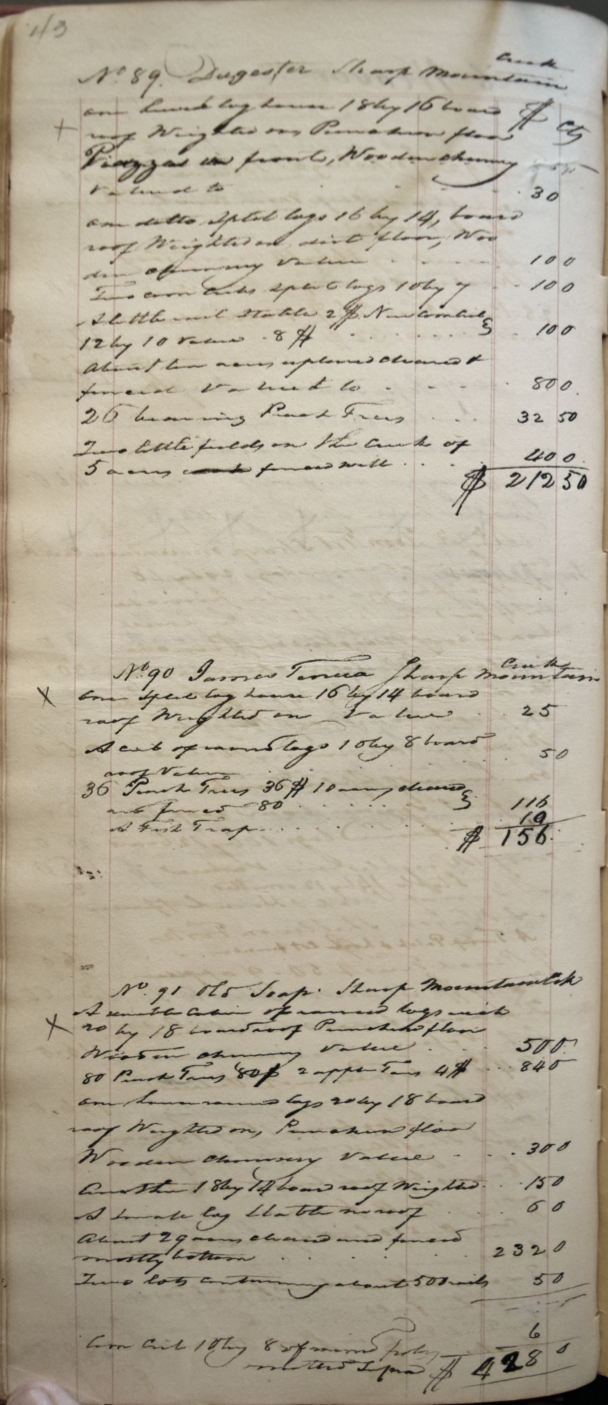 43
No 89. Dugester Sharp Mountain Creek
one hewed log house 18 by 16 board $ Cts
roof Weighted on, Puncheon floor
Piazzas in front, Wooden chimney
Valued to 30
one ditto split logs 16 by 14, board
roof Weighted on, dirt floor, Woo
den chimney Value 10 0
Two corn cribs split logs 10 by 7 10 0
A little stable 2$ New corn crib
12 by 10 Value 8$ 10 0
About ten acres upland cleared &
fenced Valued to 80 0
26 bearing Peach Trees 32 50
Two little fields on the creek of
5 acres fenced well 40 0
$ 212 50
No 90 James Sharp Mountain Creek
X one split log house 16 by 14 board
roof Weighted on Value 25
A crib of round logs 10 by 8 board
roof Value 5 0
36 Peach Trees 36$ 10 acres cleared
and fenced 80 116
A Fish Trap 10
$ 156
No. 91 Old Soap. Sharp Mountain Ck
X A double Cabin of round logs each
20 by 18 board roof Puncheon floor
Wooden chimney Value 50 0
80 Peach Trees 80$ 2 apple Trees 4$ 84 0
one house round logs 20 by 18 board
roof Weighted on, Puncheon floor
Wooden chimney Value 30 0
Another 18 by 14 board roof Weighted 15 0
A small log Stable no roof 6 0
About 29 acres cleared and fenced
mostly bottom 232 0
Two lots containing about 500 rails 5 0
6
Corn Crib 10 by 8 of round poles
omitted Supra $ 428 0